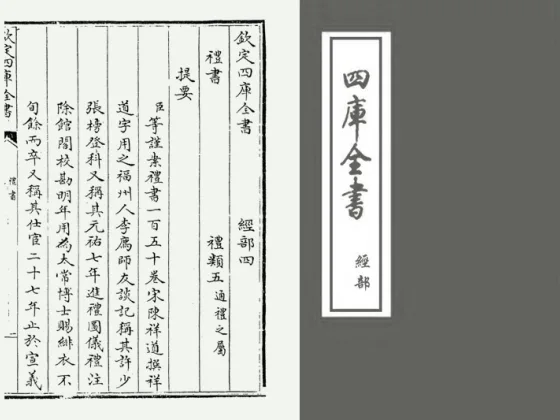 四庫全書
經部
欽定四庫全書 經部四
禮書 禮類五 通禮之屬
提要
臣等謹案禮書一百五十卷宋陳祥道撰祥
道字用之福州人李廌師友談記稱其許少
張榜登科又稱其元祐七年進禮圖儀禮注
除館閣校勘明年用為太常博士賜緋衣不
旬餘而卒又稱其仕宦二十七年止於宣義
欽定四庫全書
禮書